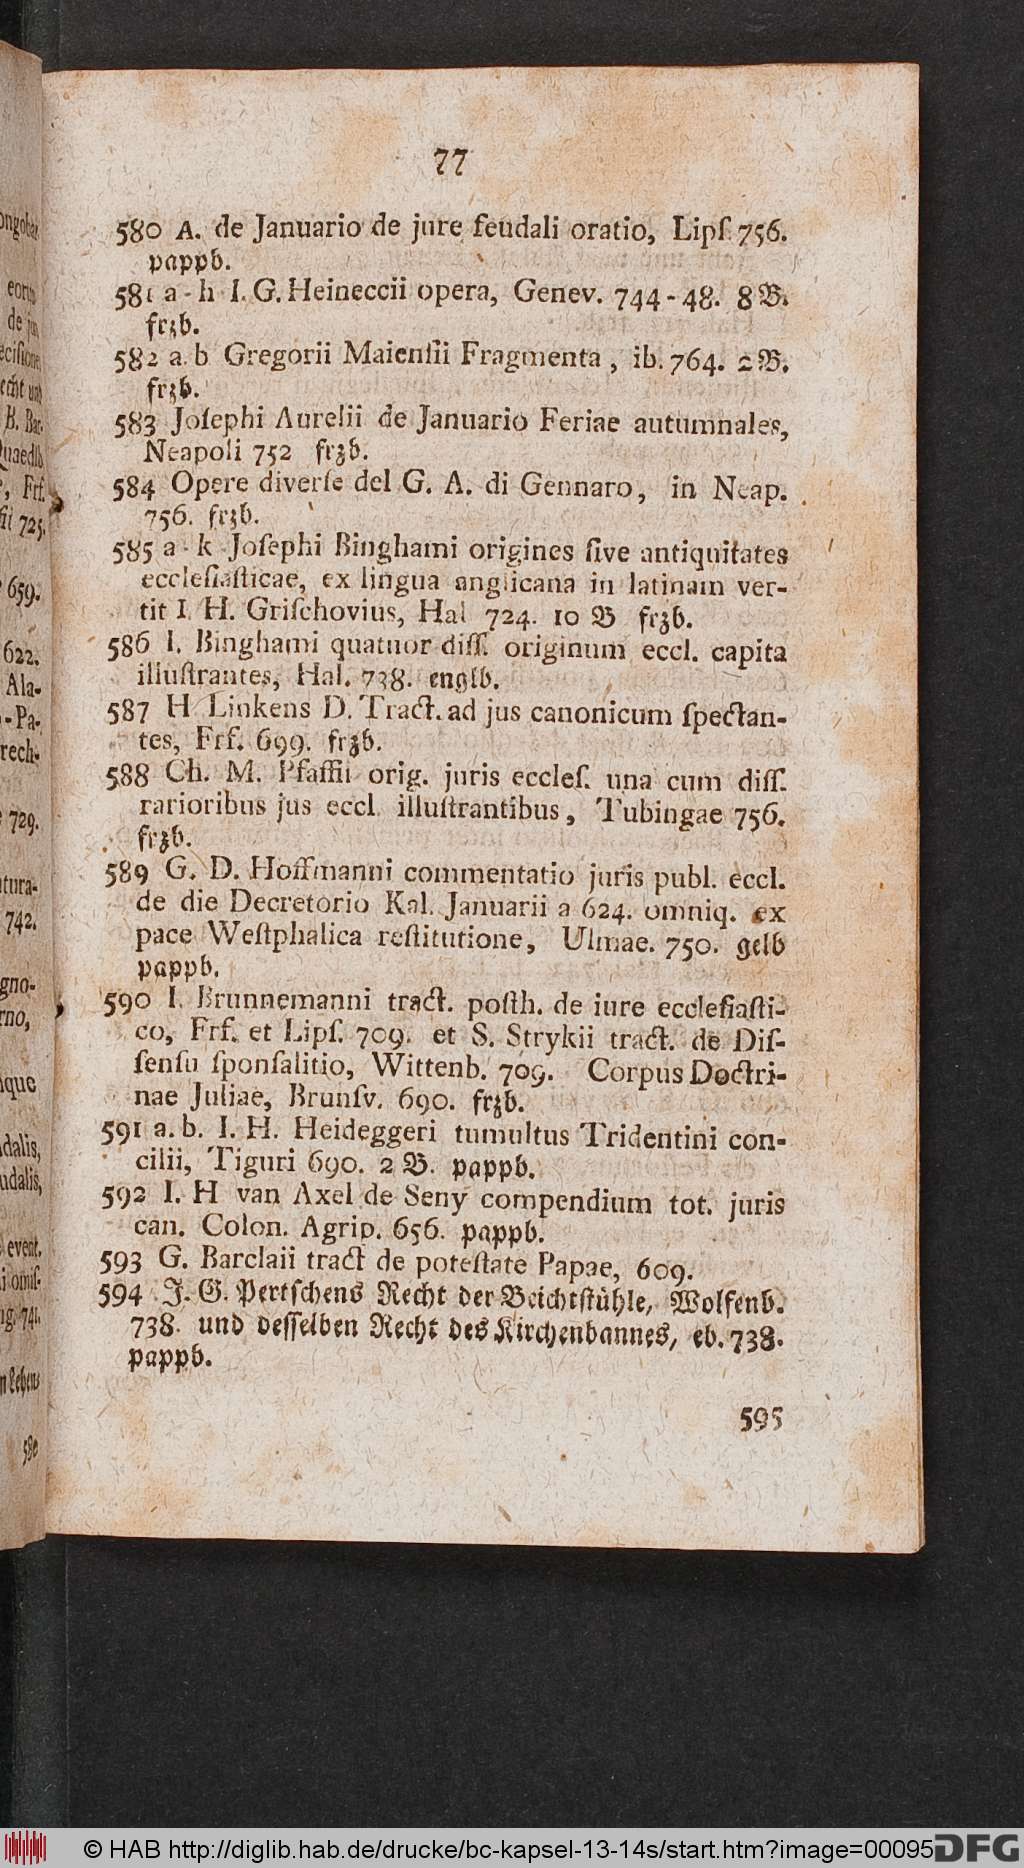 77
580 A. de Januario de jure feudali oratio, Lipſ. 756.
pappb.
581 a - h I. G. Heineccii opera, Genev. 744 - 48. 8 B.
frzb.
582 a. b Gregorii Maienſii Fragmenta, ib. 764. 2 B.
frzb.
583 Joſephi Aurelii de Januario Feriae autumnales,
Neapoli 752 frzb.
584 Opere diverſe del G. A. di Gennaro, in Neap.
756. frzb.
585 a - k Joſephi Binghami origines ſive antiquitates
eccleſiaſticae, ex lingua anglicana in latinam ver-
tit I. H. Griſchovius, Hal 724. 10 B frzb.
586 I. Binghami quatuor diſſ. originum eccl. capita
illuſtrantes, Hal. 738. englb.
587 H Linkens D. Tract. ad jus canonicum ſpectan-
tes, Frf. 699. frzb.
588 Ch. M. Pfaffii orig. juris eccleſ. una cum diſſ.
rarioribus jus eccl illuſtrantibus, Tubingae 756.
frzb.
589 G. D. Hoffmanni commentatio juris publ. eccl.
de die Decretorio Kal. Januarii a 624. omniq. ex
pace Weſtphalica reſtitutione, Ulmae. 750. gelb
pappb.
590 I. Brunnemanni tract. poſth. de iure eccleſiaſti-
co, Frf. et Lipſ. 709. et S. Strykii tract. de Diſ-
ſenſu ſponſalitio, Wittenb. 709. Corpus Doctri-
nae Juliae, Brunſv. 690. frzb.
591 a. b. I. H. Heideggeri tumultus Tridentini con-
cilii, Tiguri 690. 2 B. pappb.
592 I. H van Axel de Seny compendium tot. juris
can. Colon. Agrip. 656. pappb.
593 G. Barclaii tract de poteſtate Papae, 609.
594 J. G. Pertſchens Recht der Beichtſtühle, Wolfenb.
738. und deſſelben Recht des Kirchenbannes, eb. 738.
pappb.
595
© HAB http://diglib.hab.de/drucke/bc-kapsel-13-14s/start.htm?image=00095
DFG